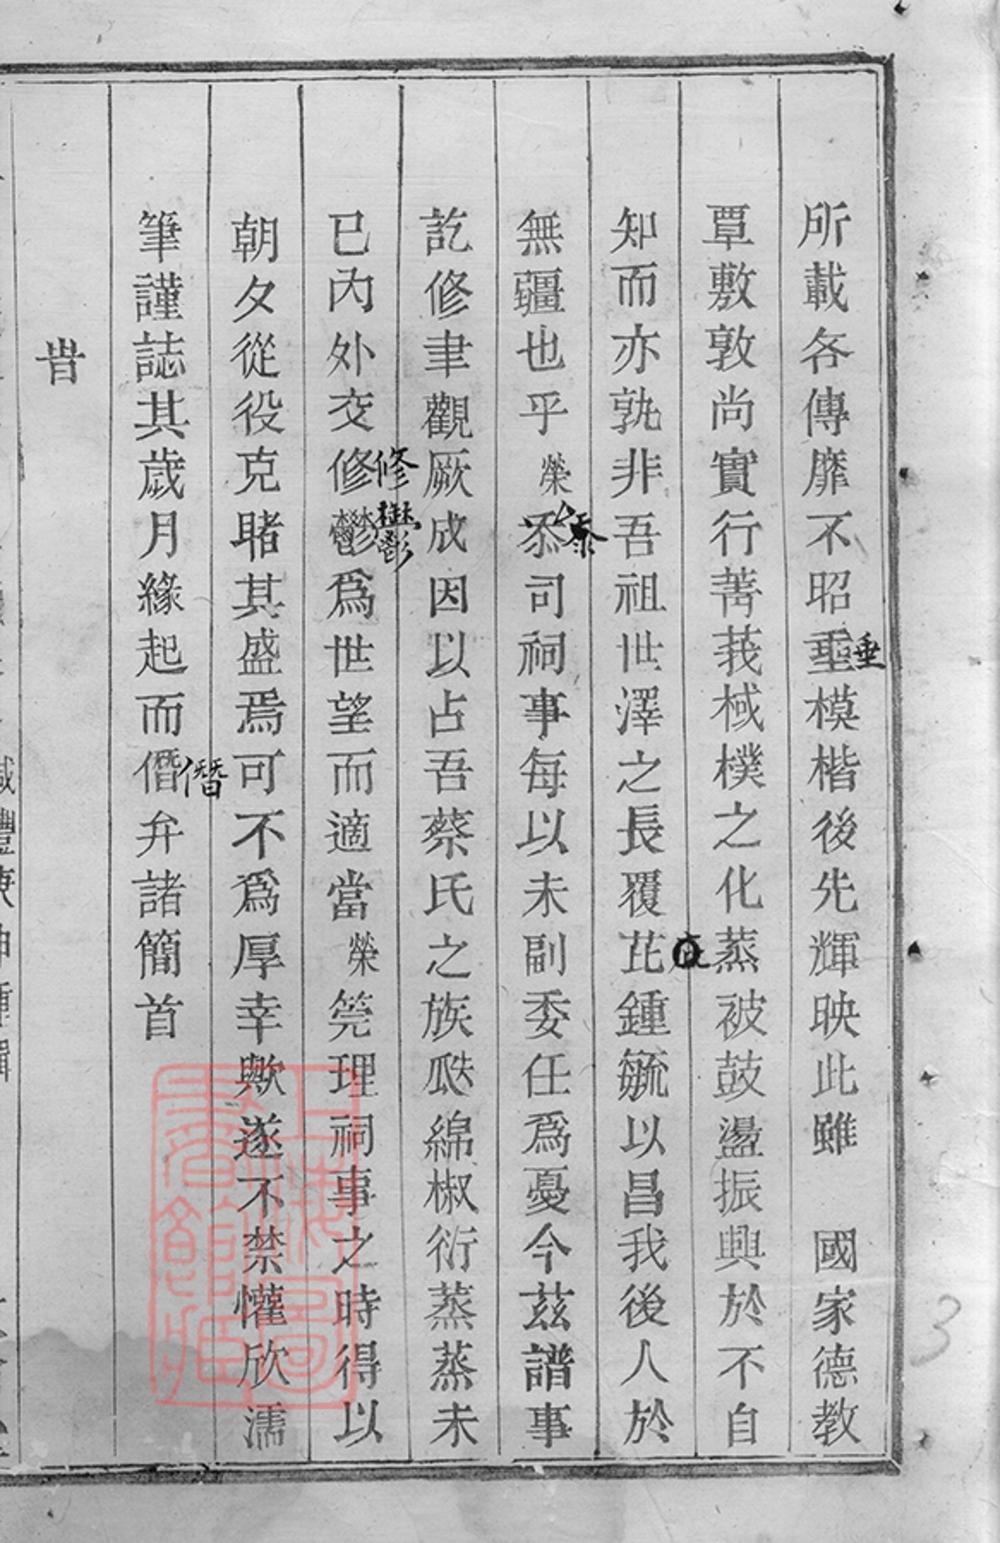 所載各傳靡不昭垂模楷後先輝映此雖 國家德教
垂
覃敷敦尚實行菁莪棫樸之化蒸被鼓盪振興於不自
知而亦孰非吾祖世澤之長覆芘鍾毓以昌我後人於
庇
無疆也乎榮忝司祠事每以未副委任為憂今茲譜事
忝
訖修聿觀厥成因以占吾蔡氏之族瓞綿椒衍蒸蒸未
已內外交修鬱為世望而適當榮筦理祠事之時得以
修鬱
朝夕從役克睹其盛焉可不為厚幸歟遂不禁懽欣濡
筆謹誌其歲月緣起而僭弁諸簡首
僭
旹